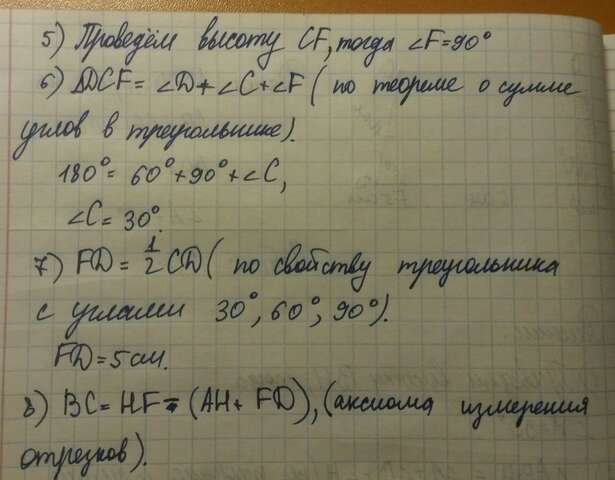 5) Проведём высоту CF, тогда ∠F=90°
6) ΔDCF= ∠D+∠C+∠F( по теореме о сумме
углов в треугольнике).
180°= 60°+90°+∠C,
∠C=30°.
7) FD= 1/2 CD( по свойству треугольника
с углами 30°, 60°, 90°).
FD=5см.
8) BC=HF= (AH+ FD), (аксиома измерения
отрезков).